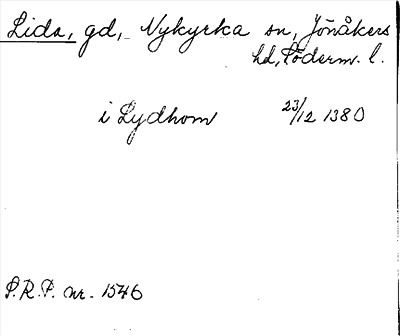 Lida, gd, Nykyrka sn, Jönåkers
hd, Söderm. l.
i Lydhom 23/12 1380
S.R.P. nr. 1546